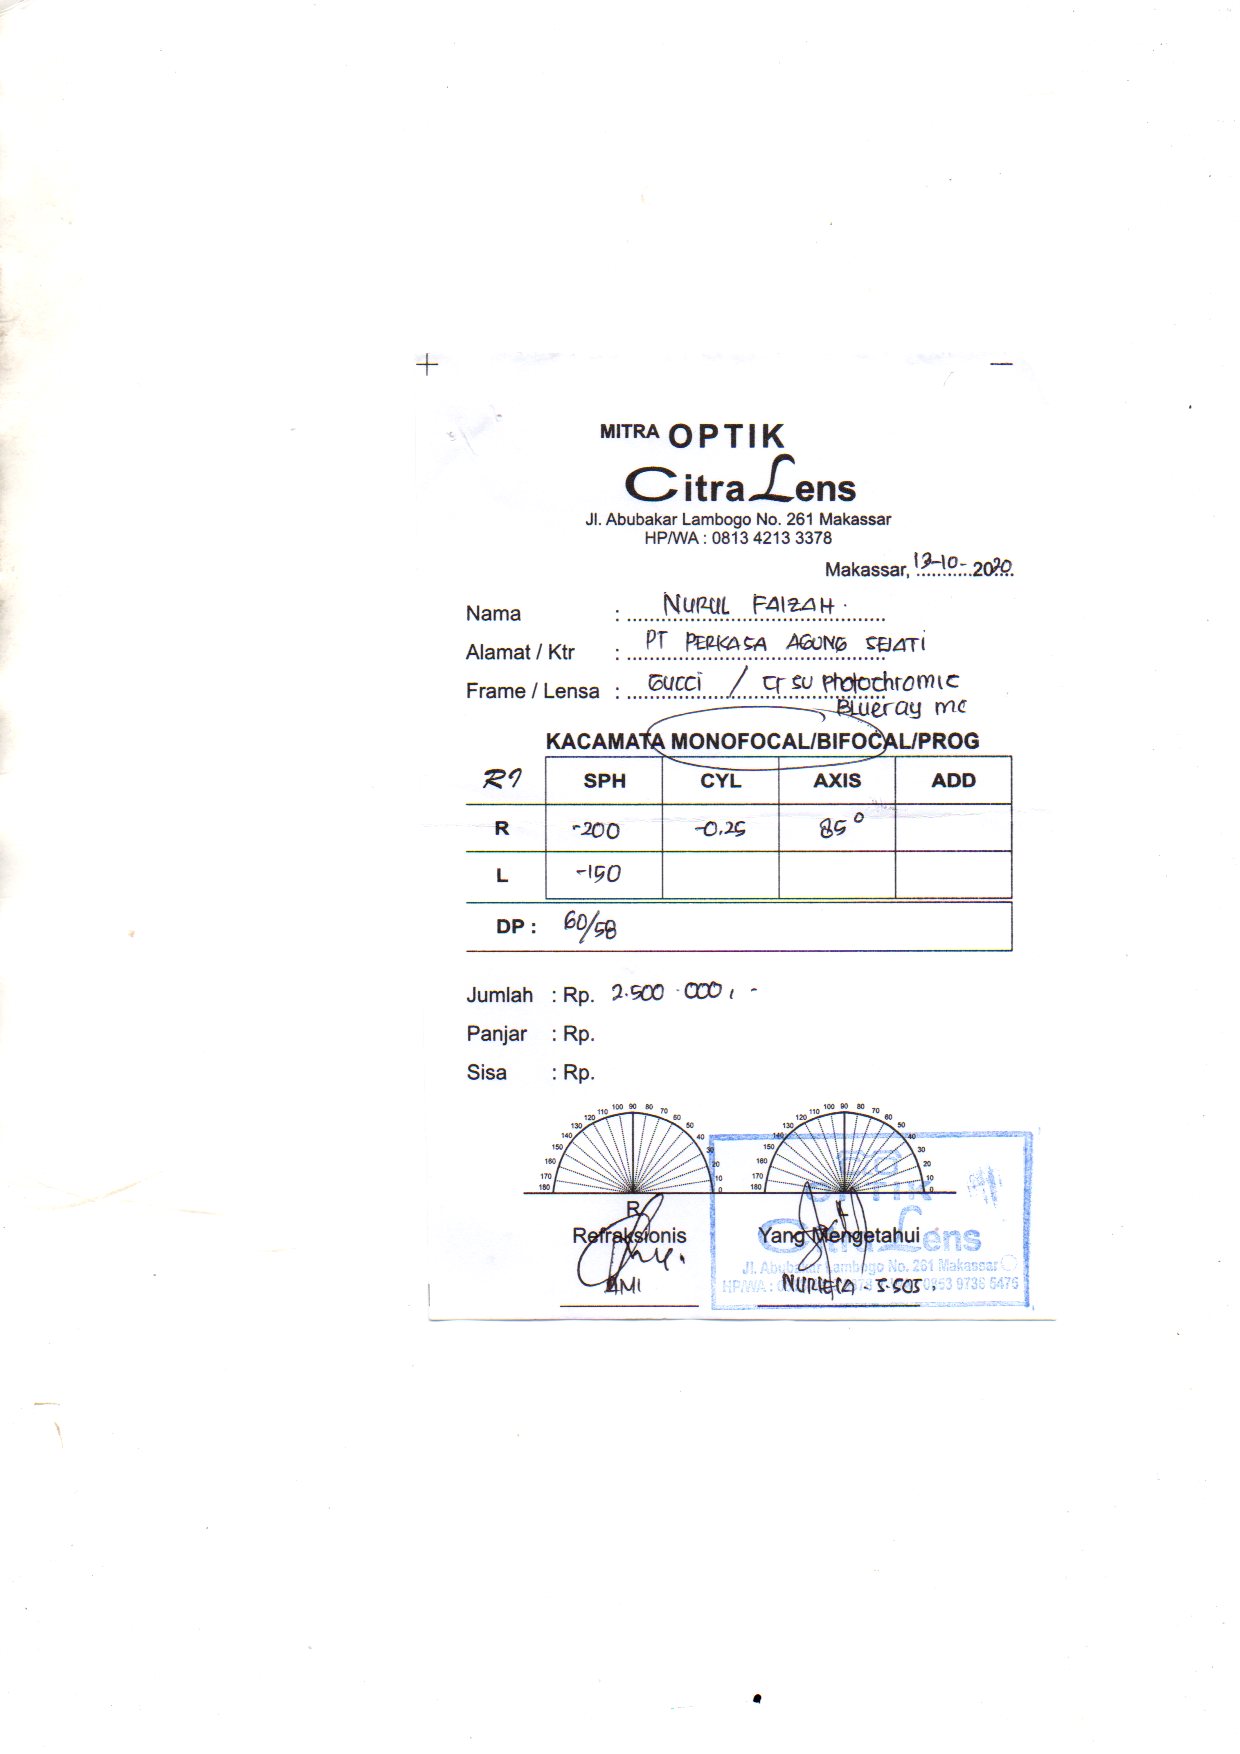 MITRA OPTIK
Citra Lens
Jl. Abubakar Lambogo No. 261 Makassar
HP/WA : 0813 4213 3378
Makassar, 13-10-2020
Nama : NURUL FAIZAH
Alamat / Ktr : PT PERKASA AGUNG SEJATI
Frame / Lensa : GUCCI / Cr SU Photochromic
Blueray mc
KACAMATA MONOFOCAL/BIFOCAL/PROG
SPH CYL AXIS ADD
R -200 -0.25 85°
L -150
DP : 60/58
Jumlah : Rp. 2.500.000,-
Panjar : Rp.
Sisa : Rp.
180 170 160 150 140 130 120 110 100 90 80 70 60 50 40 30 20 10 0
180 170 160 150 140 130 120 110 100 90 80 70 60 50 40 30 20 10 0
R L
Refraksionis Yang Mengetahui
OPTIK
Citra Lens
Jl. Abubakar Lambogo No. 261 Makassar
HP/WA : 0853 9736 5476
AMI